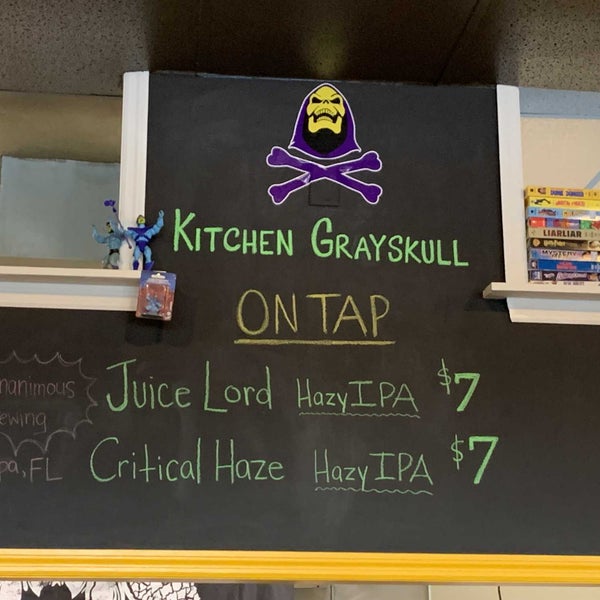 KITCHEN GRAYSKULL
ON TAP
nanimous
ewing
pa, FL
Juice Lord Hazy IPA $7
Critical Haze Hazy IPA $7
LIAR LIAR
MYSTERY